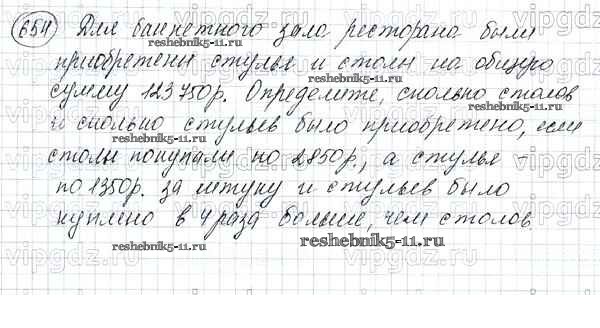 654 Для банкетного зала ресторана были
приобретены стулья и столы на общую
сумму 123750р. Определите, сколько столов
и сколько стульев было приобретено, если
столы покупали по 2850р., а стулья –
по 1350р. за штуку и стульев было
куплено в 4 раза больше, чем столов
vipgdz
reshebnik5-11.ru
reshebnik5-11.ru
reshebnik5-11.ru
reshebnik5-11.ru
reshebnik5-11.ru